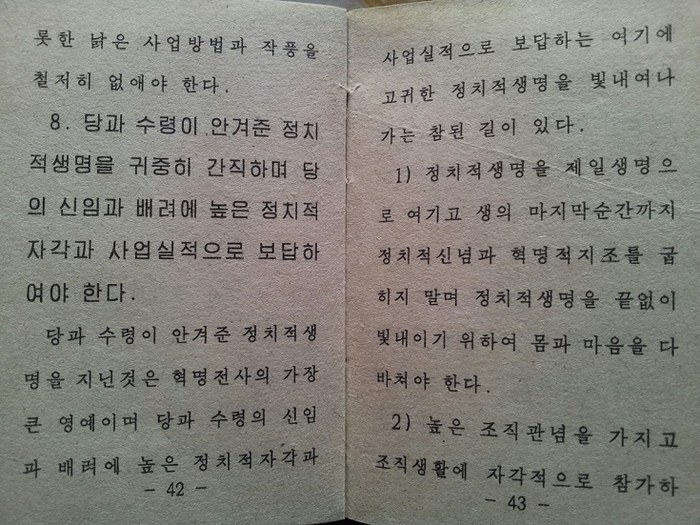 롯한 낡은 사업방법과 작풍을
철저히 없애야 한다.
8. 당과 수령이 안겨준 정치
적생명을 귀중히 간직하며 당
의 신임과 배려에 높은 정치적
자각과 사업실적으로 보답하
여야 한다.
당과 수령이 안겨준 정치적생
명을 지닌것은 혁명전사의 가장
큰 영예이며 당과 수령의 신임
과 배려에 높은 정치적자각과
- 42 -
사업실적으로 보답하는 여기에
고귀한 정치적생명을 빛내여나
가는 참된 길이 있다.
1) 정치적생명을 제일생명으
로 여기고 생의 마지막순간까지
정치적신념과 혁명적지조를 굽
히지 말며 정치적생명을 끝없이
빛내이기 위하여 몸과 마음을 다
바쳐야 한다.
2) 높은 조직관념을 가지고
조직생활에 자각적으로 참가하
- 43 -